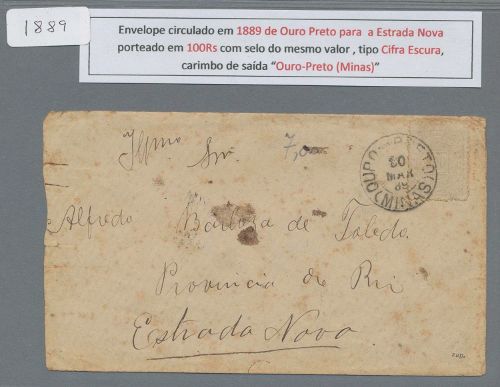 1889
Envelope circulado em 1889 de Ouro Preto para a Estrada Nova
porteado em 100Rs com selo do mesmo valor , tipo Cifra Escura,
carimbo de saída “Ouro-Preto (Minas)”
Illmo Snr. 7,
OURO-PRETO (MINAS)
20
MAR
89
Alfredo Barboza de Toledo.
Provincia de Rii
Estrada Nova